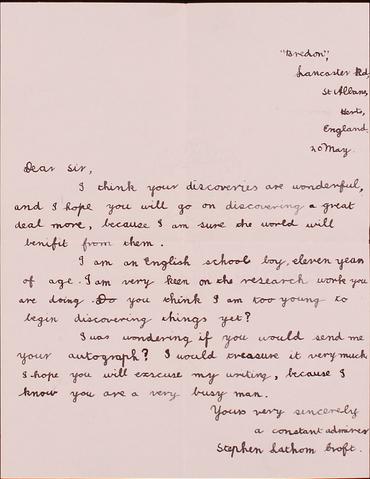 "Bredon",
Lancaster Rd,
St Albans,
Herts,
England.
20 May.
Dear Sir,
I think your discoveries are wonderful,
and I hope you will go on discovering a great
deal more, because I am sure the world will
benifit from them.
I am an English school boy, eleven years
of age. I am very keen on the research work you
are doing. Do you think I am too young to
begin discovering things yet?
I was wondering if you would send me
your autograph? I would treasure it very much
I hope you will exscuse my writing, because I
know you are a very busy man.
Yours very sincerely
a constant admirer
Stephen Lathom Croft.